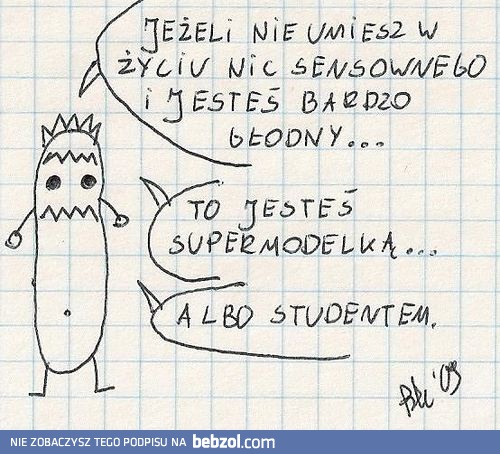 JEŻELI NIE UMIESZ W
ŻYCIU NIC SENSOWNEGO
I JESTEŚ BARDZO
GŁODNY...
TO JESTEŚ
SUPERMODELKĄ...
ALBO STUDENTEM.
'09
NIE ZOBACZYSZ TEGO PODPISU NA bebzol.com